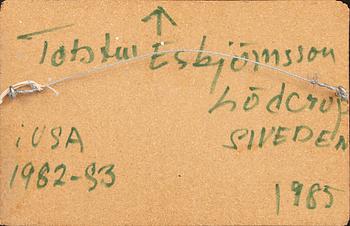 ↑
Totstui Esbjörnsson
Lödcrup
SIVEDEN
i USA
1982-83
1985